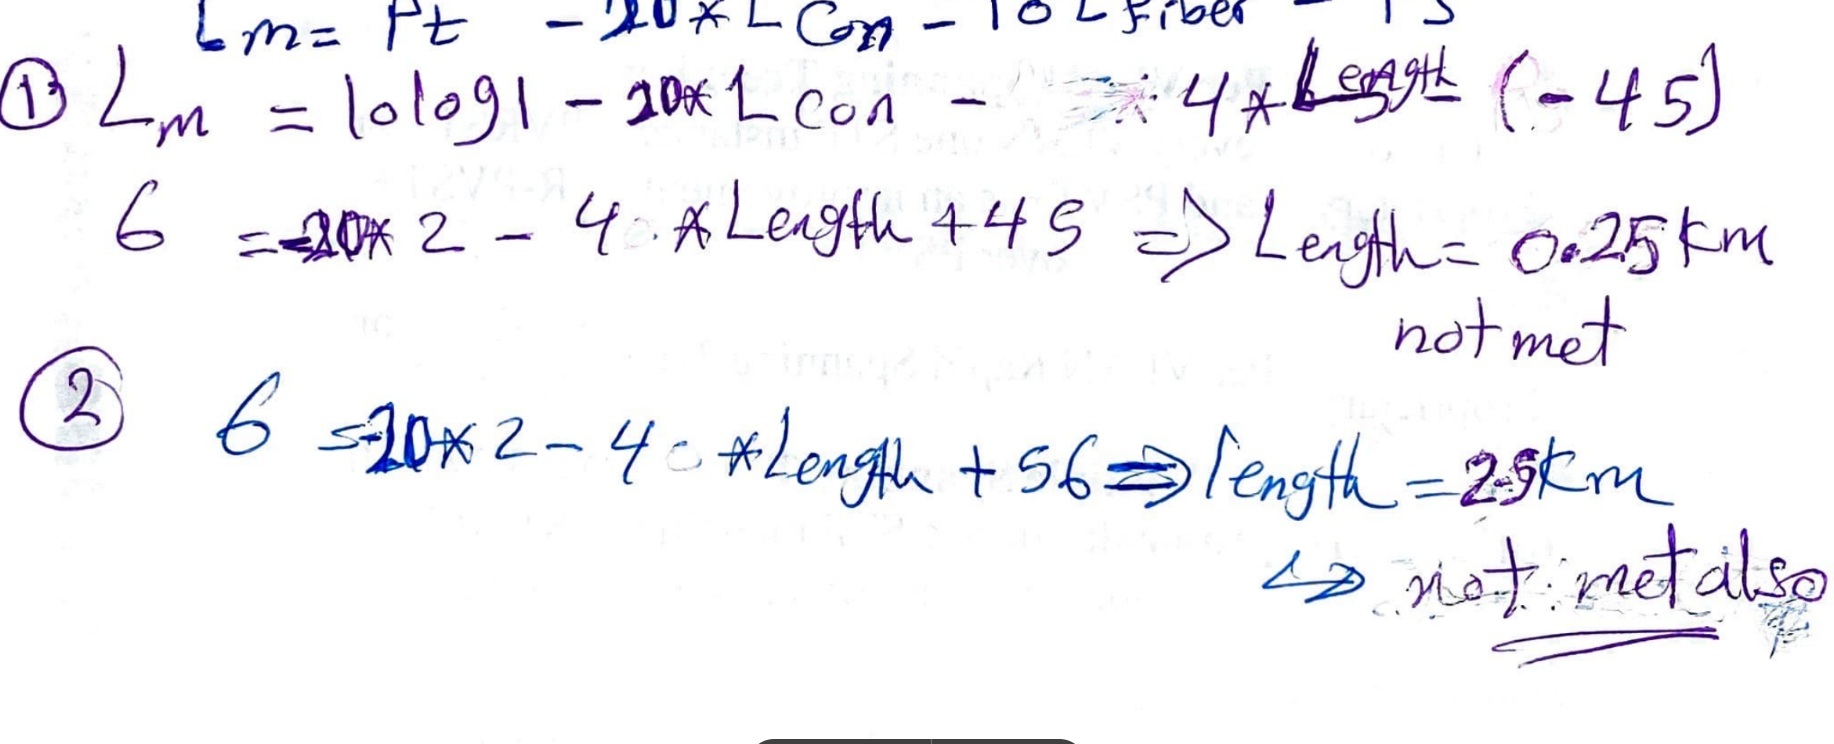 Lm = Pt - 20*L Con - 10 L Fiber - PS
① Lm = 10log1 - 20*L Con - 4*Length (-45)
6 = -20*2 - 4*Length +45 => Length = 0.25 Km
not met
② 6 = -20*2 - 4*Length +56 => length = 2.5 Km
↳ not met also